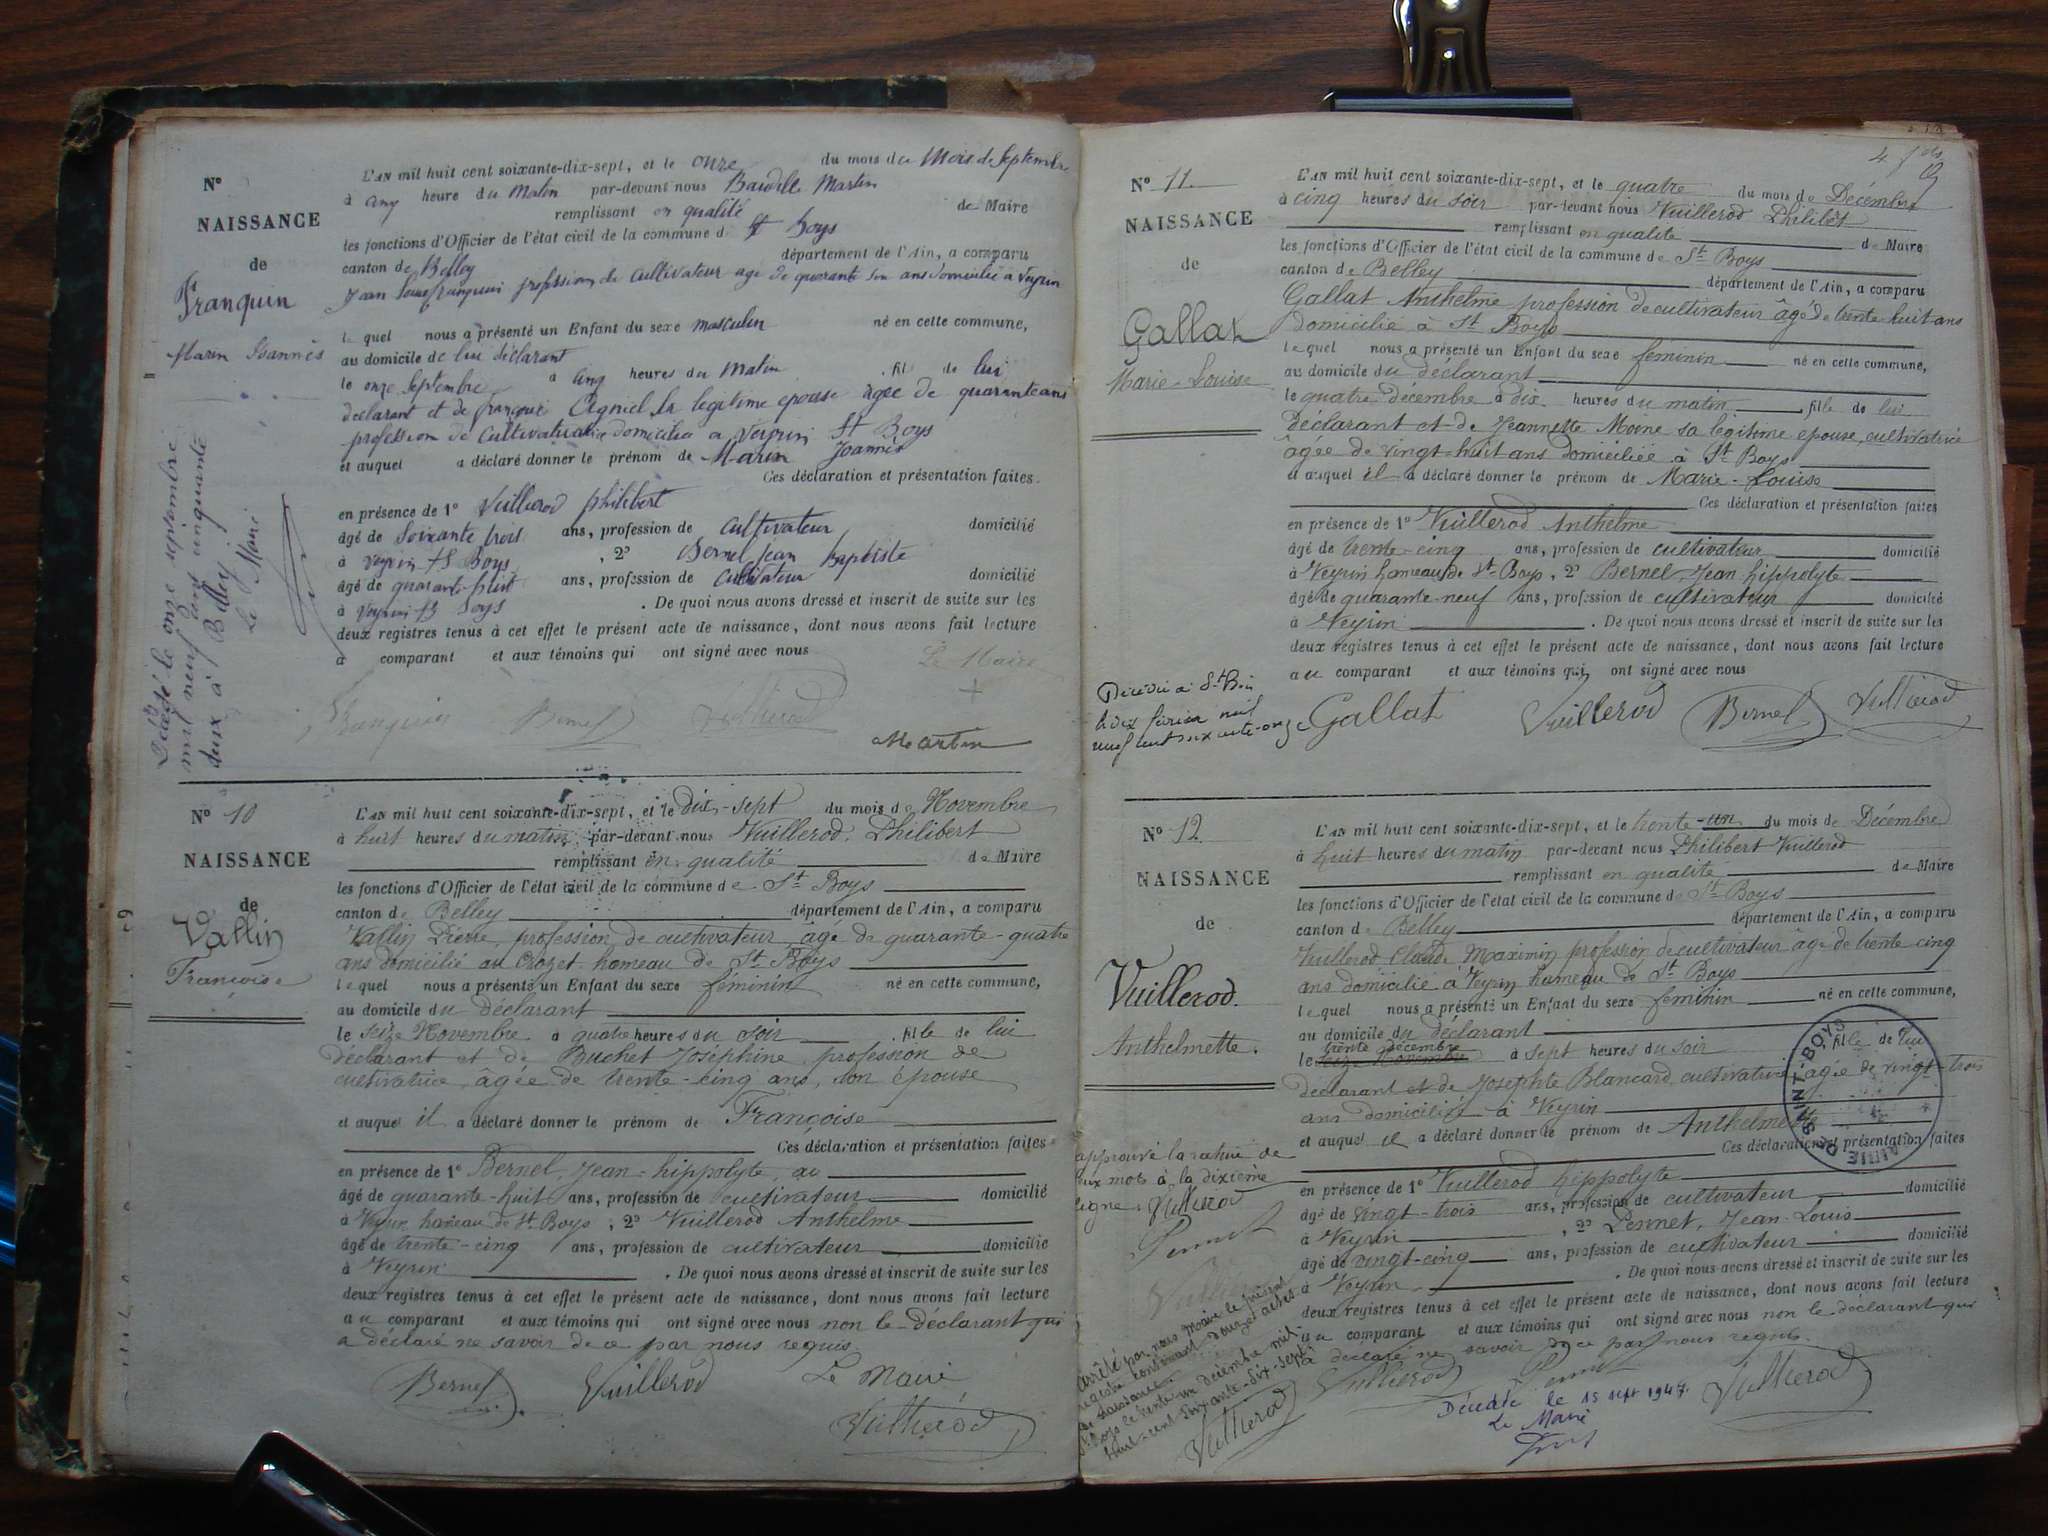 N°
NAISSANCE
de
Franquin
Marin Joannès
L'AN mil huit cent soixante-dix-sept, et le onze du mois de Mois de Septembre
à heure du Matin par-devant nous Martin
remplissant en qualité de Maire
les fonctions d'Officier de l'état civil de la commune d St Boys
canton de Belley département de l'Ain, a comparu
Jean profession de cultivateur age de quarante ans domicilié a Veyrin
le quel nous a présenté un Enfant du sexe masculin né en cette commune,
au domicile de lui déclarant
le onze Septembre à cinq heures du Matin fil de lui
déclarant et de sa legitime epouse agee de quarante ans
profession de domicilié a Veyrin St Boys
et auquel a déclaré donner le prénom de Marin Joannès
Ces déclaration et présentation faites
en présence de 1° Vuillerod philibert
âgé de Soixante trois ans, profession de cultivateur domicilié
à veyrin St Boys, 2° Bernel jean baptiste
âgé de quarante huit ans, profession de cultivateur domicilié
à veyrin St Boys. De quoi nous avons dressé et inscrit de suite sur les
deux registres tenus à cet effet le présent acte de naissance, dont nous avons fait lecture
a comparant et aux témoins qui ont signé avec nous
Le Maire
Franquin Bernel Vuillerod
Martin
Décédé le onze septembre
mil neuf cent cinquante
deux à Belley
Le Maire
N° 10
NAISSANCE
de
Vallin
Françoise
L'AN mil huit cent soixante-dix-sept, et le dix-sept du mois de Novembre
à huit heures du matin par-devant nous Vuillerod Philibert
remplissant en qualité de Maire
les fonctions d'Officier de l'état civil de la commune de St Boys
canton de Belley département de l'Ain, a comparu
Vallin Pierre, profession de cultivateur, âgé de quarante-quatre
ans domicilié au Crozet hameau de St Boys
lequel nous a présenté un Enfant du sexe féminin né en cette commune,
au domicile du déclarant
le seize Novembre à quatre heures du soir fille de lui
déclarant et de Buchet Joséphine, profession de
cultivatrice, âgée de trente-cinq ans, son épouse
et auquel il a déclaré donner le prénom de Françoise
Ces déclaration et présentation faites
en présence de 1° Bernel, Jean-hippolyte,
âgé de quarante-huit ans, profession de cultivateur domicilié
à Veyrin hameau de St Boys, 2° Vuillerod Anthelme
âgé de trente-cinq ans, profession de cultivateur domicilié
à Veyrin. De quoi nous avons dressé et inscrit de suite sur les
deux registres tenus à cet effet le présent acte de naissance, dont nous avons fait lecture
au comparant et aux témoins qui ont signé avec nous non le déclarant qui
a déclaré ne savoir de ce par nous requis
Bernel Vuillerod Le Maire
Vuillerod
4
N° 11
NAISSANCE
de
Gallat
Marie-Louise
L'AN mil huit cent soixante-dix-sept, et le quatre du mois de Décembre
à cinq heures du soir par-devant nous Vuillerod Philibert
remplissant en qualité de Maire
les fonctions d'Officier de l'état civil de la commune de St Boys
canton de Belley département de l'Ain, a comparu
Gallat Anthelme profession de cultivateur âgé de trente-huit ans
domicilié à St Boys
lequel nous a présenté un Enfant du sexe féminin né en cette commune,
au domicile du déclarant
le quatre décembre à dix heures du matin, fille de lui
Déclarant et de Jeannette Moine sa légitime épouse, cultivatrice
âgée de vingt-huit ans domiciliée à St Boys
et auquel il a déclaré donner le prénom de Marie-Louise
Ces déclaration et présentation faites
en présence de 1° Vuillerod Anthelme
âgé de trente-cinq ans, profession de cultivateur domicilié
à Veyrin hameau de St Boys, 2° Bernel, Jean hippolyte
âgé de quarante-neuf ans, profession de cultivateur domicilié
à Veyrin. De quoi nous avons dressé et inscrit de suite sur les
deux registres tenus à cet effet le présent acte de naissance, dont nous avons fait lecture
au comparant et aux témoins qui ont signé avec nous
Décédée à St Bois
le dix février mil
neuf cent soixante-onze
Gallat Vuillerod Bernel Vuillerod
N° 12
NAISSANCE
de
Vuillerod.
Anthelmette.
L'AN mil huit cent soixante-dix-sept, et le trente-un du mois de Décembre
à huit heures du matin par-devant nous Philibert Vuillerod
remplissant en qualité de Maire
les fonctions d'Officier de l'état civil de la commune de St Boys
canton de Belley département de l'Ain, a comparu
Vuillerod Claude Maximin profession de cultivateur âgé de trente cinq
ans domicilié à Veyrin hameau de St Boys
lequel nous a présenté un Enfant du sexe féminin né en cette commune,
au domicile du déclarant
trente décembre
le seize Novembre à sept heures du soir fille de lui
déclarant et de Josephte Blancard, cultivatrice âgée de vingt-trois
ans domiciliée à Veyrin
et auquel il a déclaré donner le prénom de Anthelmette
Ces déclaration et présentation faites
en présence de 1° Vuillerod hippolyte
âgé de vingt-trois ans, profession de cultivateur domicilié
à Veyrin, 2° Pernet, Jean-Louis
âgé de vingt-cinq ans, profession de cultivateur domicilié
à Veyrin. De quoi nous avons dressé et inscrit de suite sur les
deux registres tenus à cet effet le présent acte de naissance, dont nous avons fait lecture
au comparant et aux témoins qui ont signé avec nous non le déclarant qui
a déclaré ne savoir de ce par nous requis.
MAIRIE DE SAINT-BOYS
approuvé la rature de
deux mots à la dixième
ligne. Vuillerod
Pernet
Vuillerod
arrêté par nous Maire le présent
registre contenant douze actes
de naissance
St Boys le trente un décembre mil
huit-cent soixante-dix-sept
Vuillerod
Vuillerod Pernet Vuillerod
Décédée le 15 sept 1947.
Le Maire